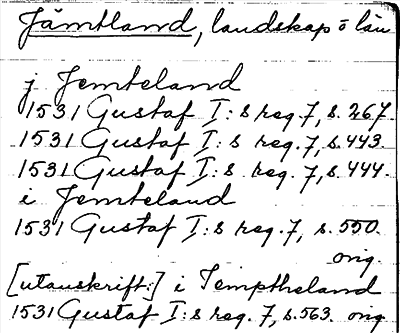 Jämtland, landskap o län
j Jemteland
1531 Gustaf I:s reg. 7, s. 267.
1531 Gustaf I:s reg. 7, s. 443.
1531 Gustaf I:s reg. 7, s. 444.
i Jemteland
1531 Gustaf I:s reg. 7, s. 550.
orig.
[utanskrift:] i Jemptheland
1531 Gustaf I:s reg. 7, s. 563. orig